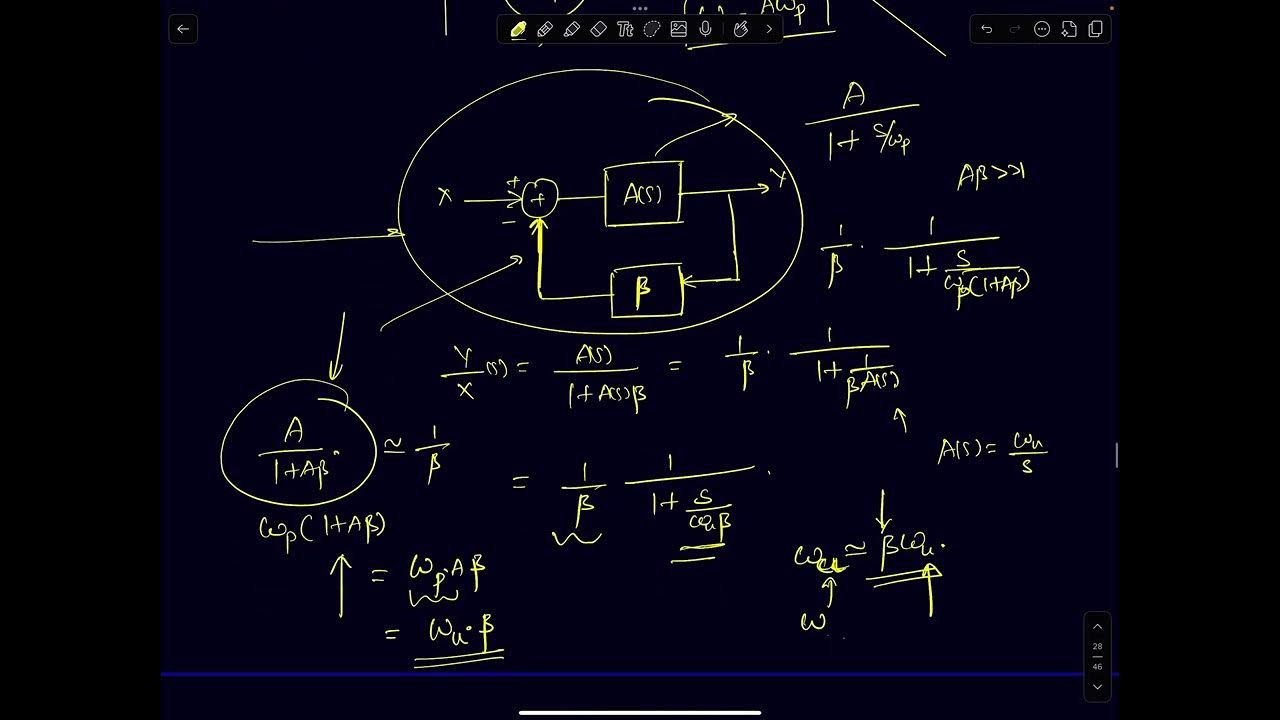 ω_u = Aω_p
A / (1 + s/ω_p)
Aβ >> 1
X + - + A(s) Y
β
1/β · 1 / (1 + s/(ω_p(1+Aβ)))
Y/X (s) = A(s) / (1 + A(s)β) = 1/β · 1 / (1 + 1/(βA(s)))
A / (1+Aβ) · ≃ 1/β
A(s) = ω_u / s
= 1/β 1 / (1 + s/(ω_u β)) .
ω_p(1+Aβ)
ω_CL ≃ βω_u.
= ω_p.Aβ
ω
= ω_u.β
Tt
28
46